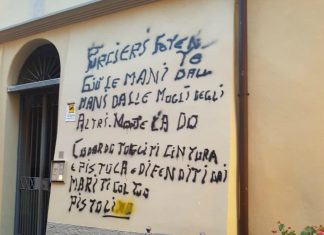 PURCIERI FETEN
TO
GIÙ LE MANI DALL
MANS DALLE MOGLI DEGLI
ALTRI. MONTECADO
CODARDO TOGLITI CINTURA
E PISTOLA E DIFENDITI DAI
MARITI COL TUO
PISTOLINO